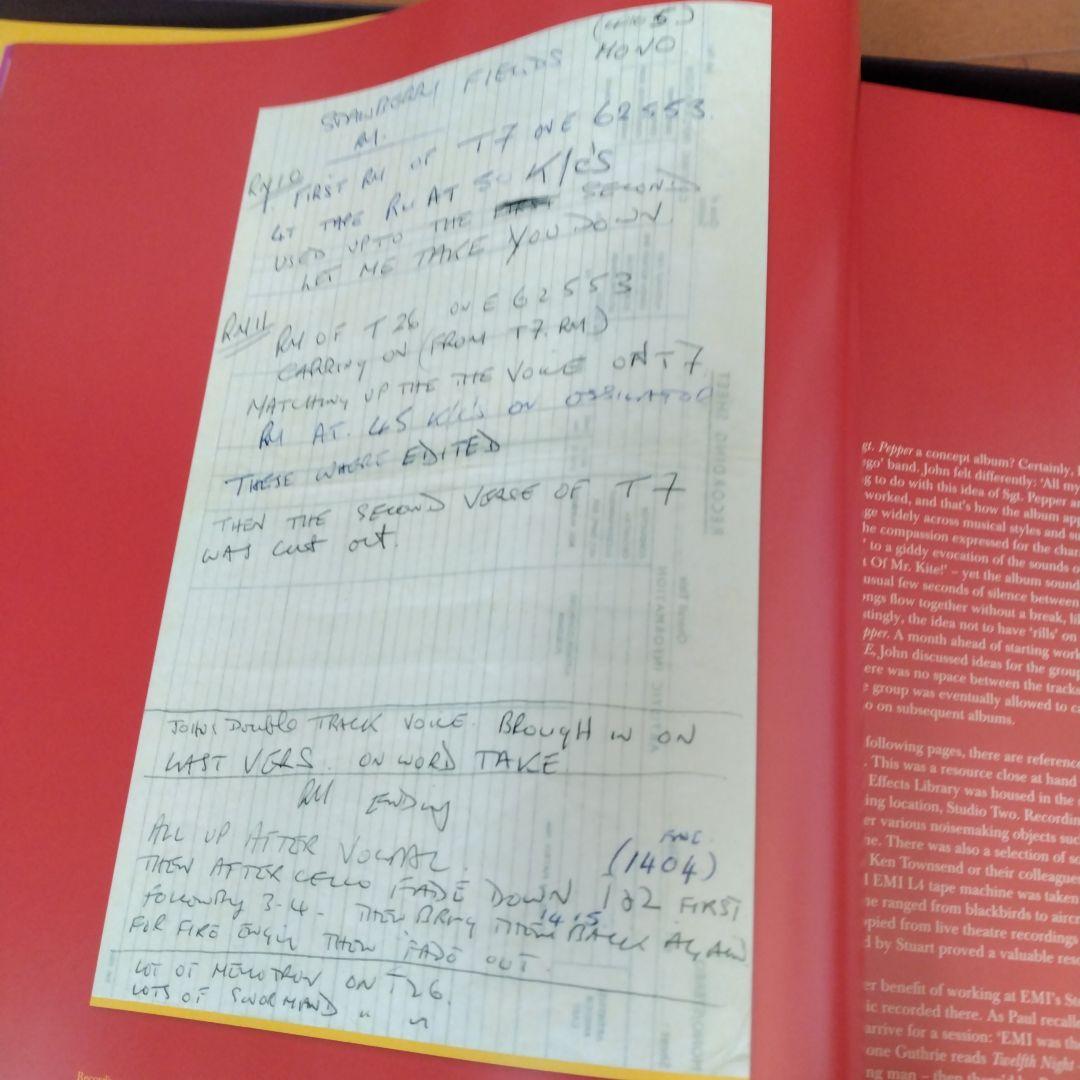 (MONO 5)
STRAWBERRY FIELDS MONO
RM.
RM10
FIRST RM OF T7 ON E 62553.
4T TAPE RM AT 50 K/C'S
USED UPTO THE FIRST SECOND
LET ME TAKE YOU DOWN
RM11
RM OF T26 ON E62553
CARRING ON (FROM T7. RM)
MATCHING UP THE THE VOICE ON T7
RM AT. 45 K/C'S ON OSSILATOR
THESE WHERE EDITED
THEN THE SECOND VERSE OF T7
WAS cut out.
JOHNS Double TRACK VOICE. BROUGH IN ON
LAST VERS. ON WORD TAKE
RM ENDING
ALL UP AFTER VOCAL.
(1404)
THEN AFTER CELLO FADE DOWN 1&2 FIRST
following 3-4. THEN BRING THEM BACK AGAIN
FOR FIRE ENGIN THEN FADE OUT.
LOT OF MELLOTRON ON T26.
LOTS OF SWORMAND " "
RECORDING SHEET
gt. Pepper a concept album? Certainly,
go' band. John felt differently: 'All my
g to do with this idea of Sgt. Pepper
worked, and that's how the album
ge widely across musical styles and
he compassion expressed for the
' to a giddy evocation of the sounds
t Of Mr. Kite!' – yet the album
usual few seconds of silence between
ngs flow together without a break,
tingly, the idea not to have 'rills' on
pper. A month ahead of starting
E, John discussed ideas for the group
ere was no space between the tracks
e group was eventually allowed to
o on subsequent albums.
following pages, there are
. This was a resource close at hand
Effects Library was housed in the
ing location, Studio Two.
er various noisemaking objects
ne. There was also a selection of
Ken Townsend or their colleagues
l EMI L4 tape machine was taken
ne ranged from blackbirds to
pied from live theatre recordings
d by Stuart proved a valuable
er benefit of working at EMI's
ic recorded there. As Paul
arrive for a session: 'EMI was the
one Guthrie reads Twelfth Night
ng man – then